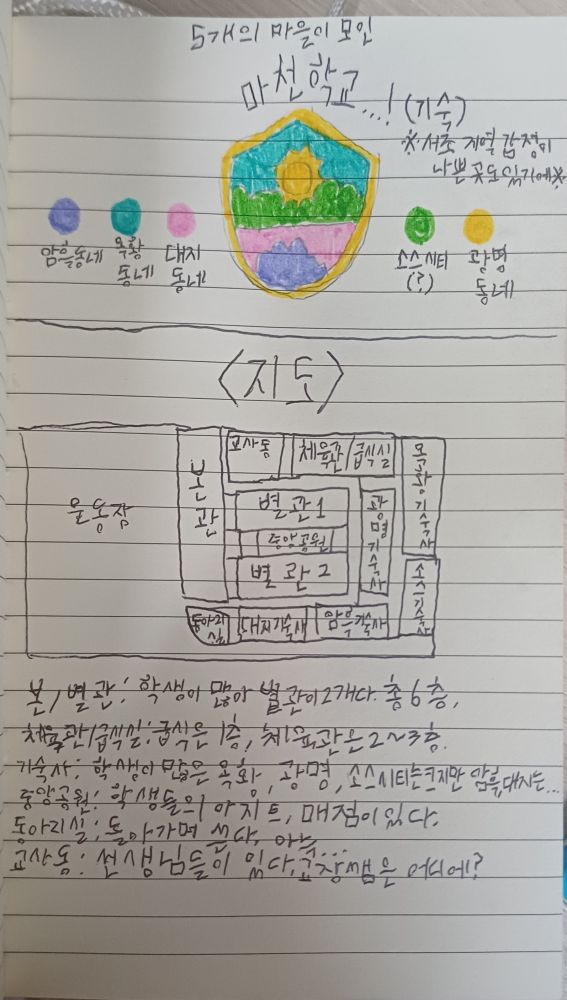 5개의 마을이 모인
마천학교...! (기숙)
※서로 지열 감정이
나쁜 곳도 있기에※
암흑동네
옥황
동네
대지
동네
소스시티
(?)
광명
동네
<지도>
운동장
본관
교사동
체육관/급식실
옥황기숙사
별관1
중앙공원
별관2
광명기숙사
소스기숙사
동아리실
대지기숙사
암흑기숙사
본/별관: 학생이 많아 별관이 2개다. 총 6층,
체육관/급식실: 급식은 1층, 체육관은 2~3층.
기숙사: 학생이 많은 옥황, 광명, 소스시티는 크지만 암흑,대지는...
중앙공원: 학생들의 아지트, 매점이 있다.
동아리실: 돌아가며 쓴다. 아누...
교사동: 선생님들이 있다, 교장쌤은 어디에?